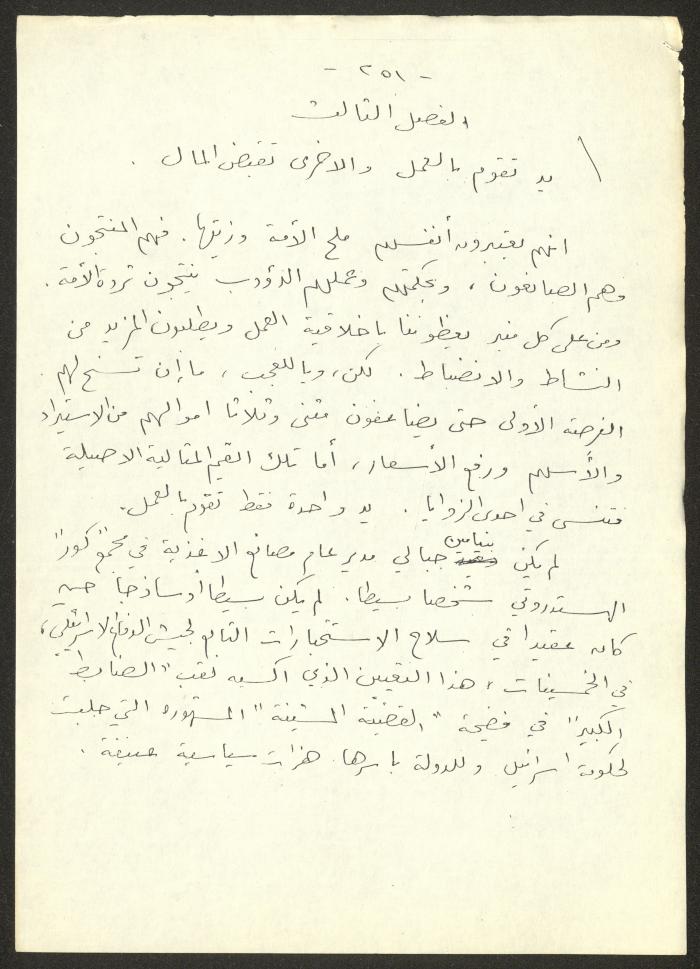 - ٢٥١ -
الفصل الثالث
يد تقوم بالعمل والاخرى تقبض المال .
انهم يعتبرون أنفسهم ملح الأمة وزيتها. فهم المنتجون
وهم الصانعون ، وبحكمتهم وعملهم الدؤوب ينتجون ثروة الأمة .
ومن على كل منبر يعظوننا باخلاقية العمل ويطلبون المزيد من
النشاط والانضباط . لكن، ويا للعجب ، ما إن تسنح لهم
الفرصة الأولى حتى يضاعفون مثنى وثلاثا اموالهم من الاستيراد
والأسهم ورفع الأسعار، أما تلك القيم المثالية الاصيلة
فتنسى في احدى الزوايا . يد واحدة فقط تقوم بالعمل.
لم يكن بنيامين جبالي مدير عام مصانع الاغذية في مجمع "كور"
الهستدروتي شخصا بسيطا. لم يكن بسيطا أو ساذجا حين
كان عقيدا في سلاح الاستخبارات التابع لجيش الدفاع الاسرائيلي،
في الخمسينات ، هذا التعيين الذي اكسبه لقب "الضابط
الكبير" في فضيحة "القضية المشينة" المشهوره التي جلبت
لحكومة اسرائيل وللدولة باسرها هزات سياسية عنيفة .